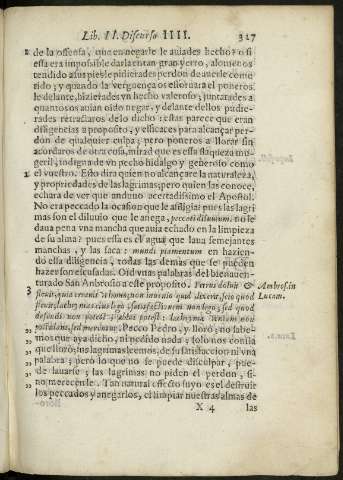 Lib. II. Discurso IIII. 327
de la offensa, que en negarle le auiades hecho? o si
essa era imposible darla en tan gran yerro, alomenos
tendido a sus pies le pidierades perdon de auerle come
tido; y quando la verguença os estoruara el poneros
le delante, hizierades vn hecho valeroso, juntarades a
quantos os auian oido negar, y delante dellos pudie-
rades retractaros de lo dicho: estas parece que eran
diligencias a proposito, y eficaces para alcançar per-
don de qualquier culpa; pero poneros a llorar sin
acordaros de otra cosa, mirad que es essa flaqueza mu-
geril, indigna de vn pecho hidalgo y generoso como
el vuestro. Esto dira quien no alcançare la naturaleza,
y propriedades de las lagrimas; pero quien las conoce,
echara de ver que anduuo acertadissimo el Apostol.
No era pecado la ocasion que le afligia? pues las lagri
mas son el diluuio que le anega, peccati diluuium. no le
daua pena vna mancha que auia echado en la limpieza
de su alma? pues essa es el agua que laua semejantes
manchas, y las saca: mundi piamentum en hazien-
do essa diligencia, todas las demas que se pueden
hazer son escusadas. Oid vnas palabras del bienauen-
turado San Ambrosio a este proposito. Petrus doluit &
fleuit, quia errauit vt homo, non inuenio quid dixerit, scio quod
fleuit, lachrymas eius lego, satisfactionem non lego, sed quod
defendi non potest ablui potest: lachrymæ veniam non
postulant, sed merentur. Pecco Pedro, y lloró; no sabe-
mos que aya dicho, ni pedido nada; solo nos consta
que lloró; sus lagrimas leemos, de su satisfaccion ni vna
palabra; pero lo que no se puede disculpar, pue-
de lauarse; las lagrimas no piden el perdon, si-
no merecenle. Tan natural effecto suyo es el destruir
los peccados y anegarlos, el limpiar nuestras almas de
X 4 las
Ambros. in
Lucam.